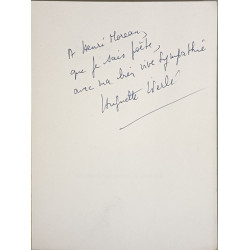 A Henri Moreau,
que je sais poète,
avec ma très vive sympathie
Huguette Werlé